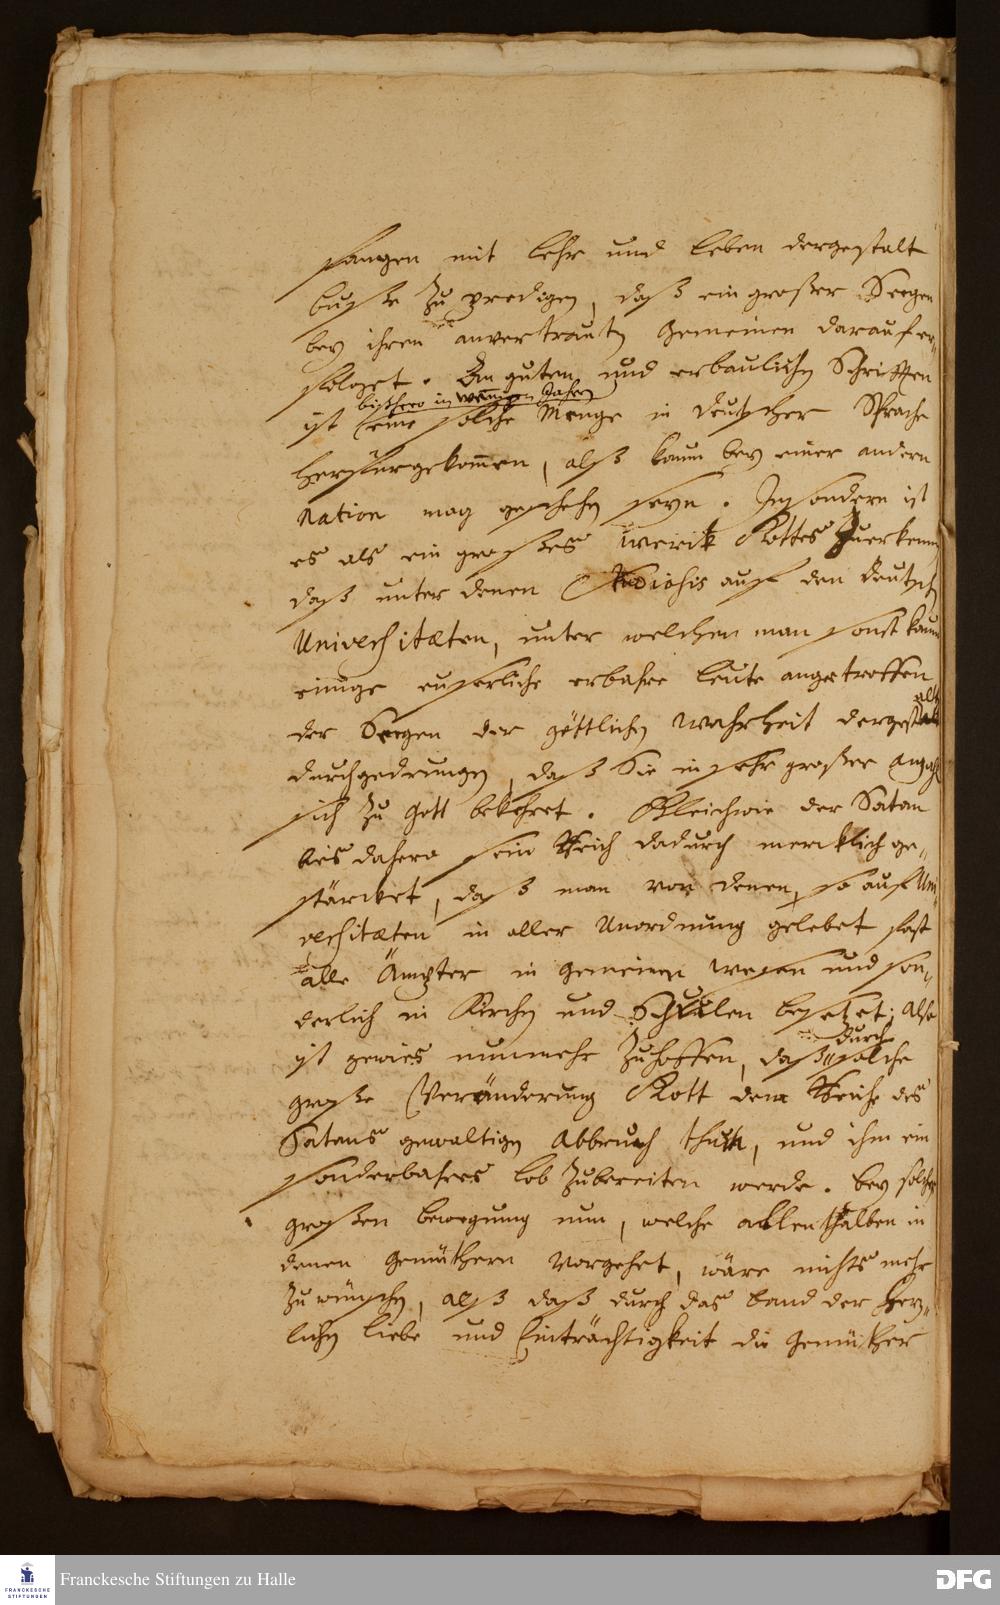 fangen mit lehr und leben dergestalt
buße zu predigen, daß ein großer Seegen
bey ihren anvertrauten Gemeinen darauf er-
folget. An guten und erbaulichen Schrifften
bißhero in wenigen Jahren
ist eine solche Menge in deutscher Sprache
herfürgekommen, alß kaum bey einer andern
Nation mag geschehen seyn. Insondern ist
es als ein großes werck Gottes zuerkennen
daß unter denen Studiosis auff den deutschen
Universitæten, unter welchen man sonst kaum
einige euserliche erbahre leute angetroffen
der Seegen der göttlichen Wahrheit dergestalt
durchgedrungen, daß Sie in sehr großer Anzahl
sich zu Gott bekehret. Gleichwie der Satan
bis dahero sein Reich dadurch mercklich ge-
stärcket, daß man von denen, so auf Uni-
versitæten in aller Unordnung gelebet fast
alle Ämpter in gemeinen wesen und son-
derlich in Kirchen und Schulen besetzet; Also
durch
ist gewies nunmehr zuhoffen, daß solche
große Veränderung Gott dem Reiche des
Satans gewaltigen Abbruch thun, und ihm ein
sonderbahres lob zubereiten werde. bey solcher
großen bewegung nun, welche allenthalben in
denen Gemüthern vorgehet, wäre nichts mehr
zu wünschen, alß daß durch das band der hertz-
lichen liebe und Einträchtigkeit die Gemüther
Franckesche Stiftungen zu Halle
FRANCKESCHE
STIFTUNGEN
DFG